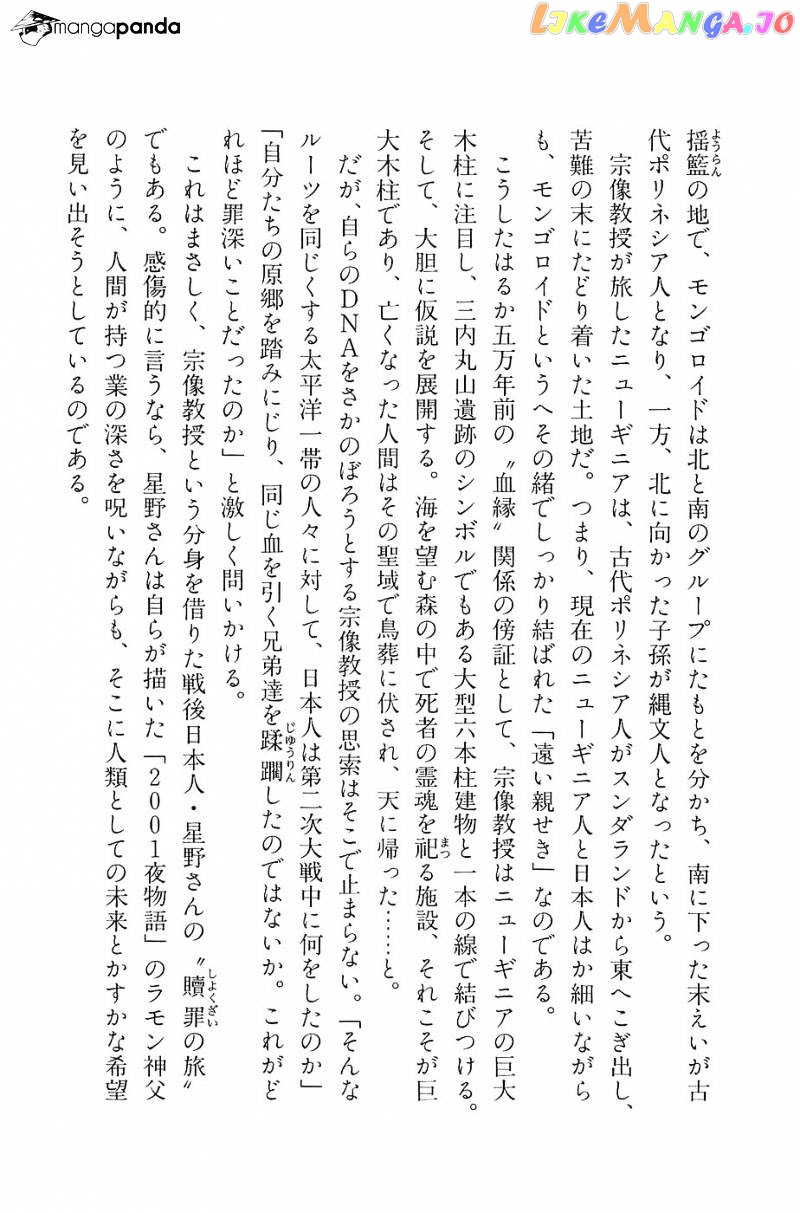 mangapanda
LIKEMANGA.IO
揺籃の地で、モンゴロイドは北と南のグループにたもとを分かち、南に下った末えいが古
ようらん
代ポリネシア人となり、一方、北に向かった子孫が縄文人となったという。
宗像教授が旅したニューギニアは、古代ポリネシア人がスンダランドから東へこぎ出し、
苦難の末にたどり着いた土地だ。つまり、現在のニューギニア人と日本人はか細いながら
も、モンゴロイドというへその緒でしっかり結ばれた「遠い親せき」なのである。
こうしたはるか五万年前の〝血縁〟関係の傍証として、宗像教授はニューギニアの巨大
木柱に注目し、三内丸山遺跡のシンボルでもある大型六本柱建物と一本の線で結びつける。
そして、大胆に仮説を展開する。海を望む森の中で死者の霊魂を祀る施設、それこそが巨
まつ
大木柱であり、亡くなった人間はその聖域で鳥葬に伏され、天に帰った……と。
だが、自らのDNAをさかのぼろうとする宗像教授の思索はそこで止まらない。「そんな
ルーツを同じくする太平洋一帯の人々に対して、日本人は第二次大戦中に何をしたのか」
「自分たちの原郷を踏みにじり、同じ血を引く兄弟達を蹂躙したのではないか。これがど
じゆうりん
れほど罪深いことだったのか」と激しく問いかける。
これはまさしく、宗像教授という分身を借りた戦後日本人・星野さんの〝贖罪の旅〟
しよくざい
でもある。感傷的に言うなら、星野さんは自らが描いた「2001夜物語」のラモン神父
のように、人間が持つ業の深さを呪いながらも、そこに人類としての未来とかすかな希望
を見い出そうとしているのである。